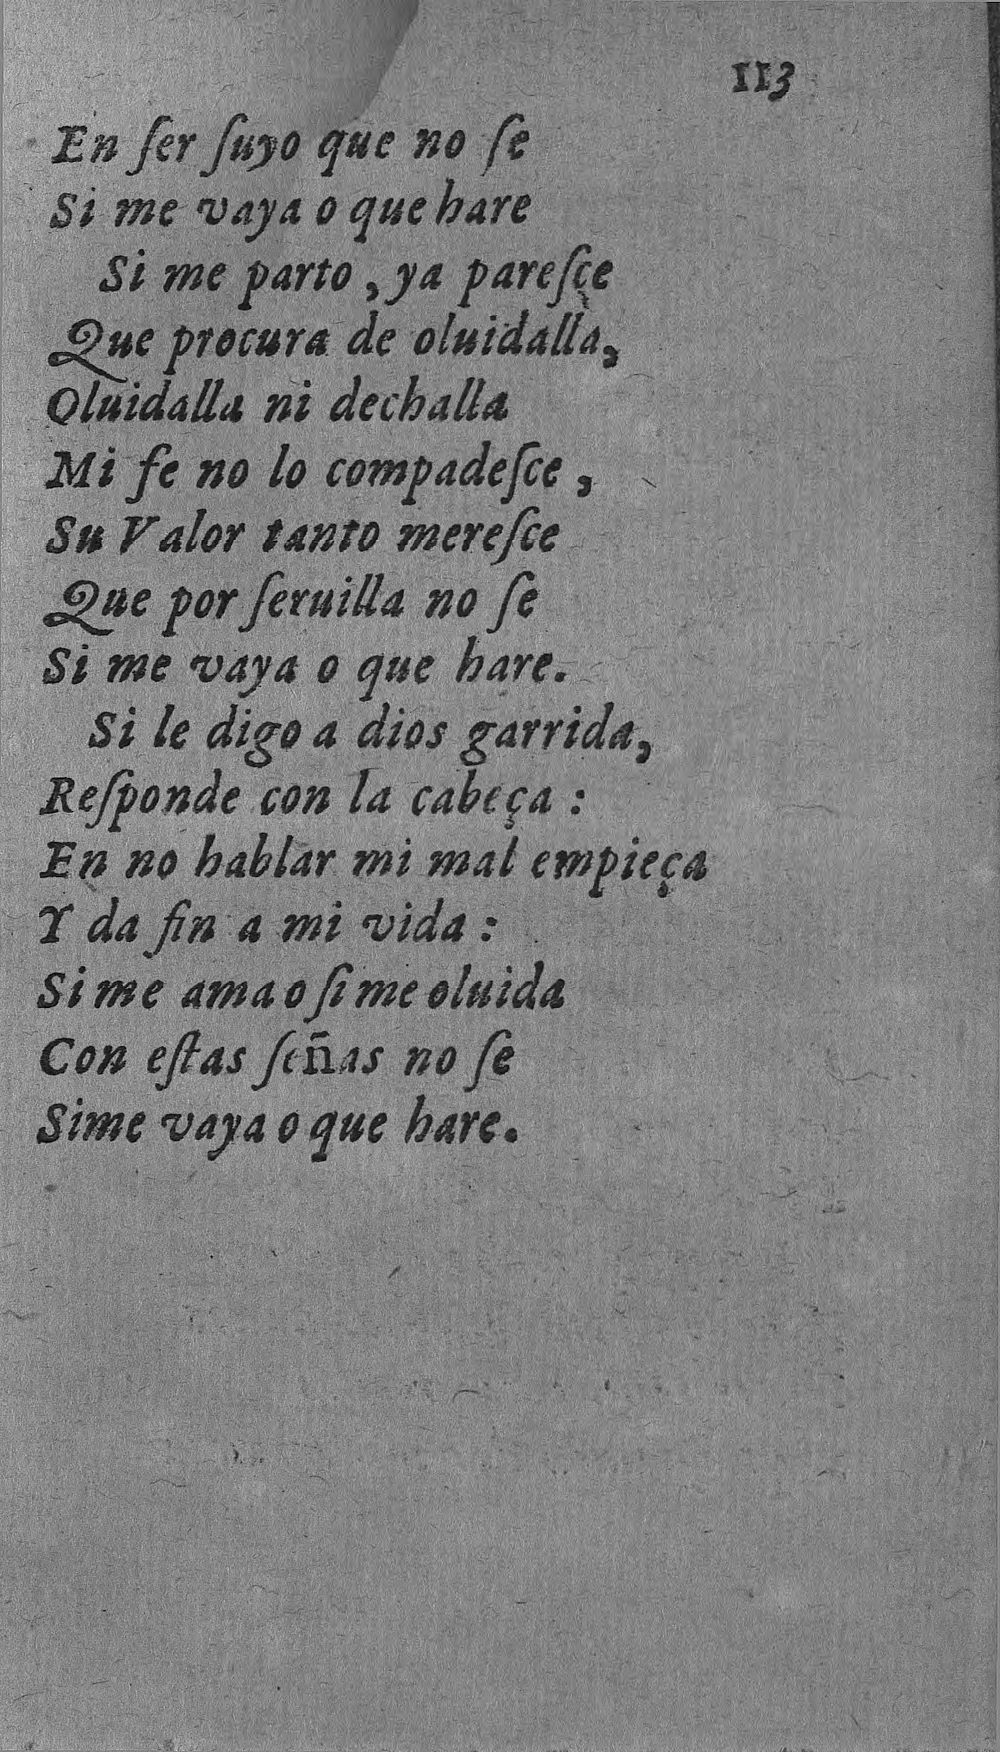 113
En ſer ſuyo que no ſe
Si me vaya o que hare
Si me parto, ya pareſçe
Que procura de oluidalla,
Oluidalla ni dechalla
Mi fe no lo compadeſce,
Su Valor tanto mereſce
Que por ſeruilla no ſe
Si me vaya o que hare.
Si le digo a dios garrida,
Reſponde con la cabeça:
En no hablar mi mal empieça
Y da fin a mi vida:
Si me ama o ſi me oluida
Con eſtas ſeñas no ſe
Sime vaya o que hare.